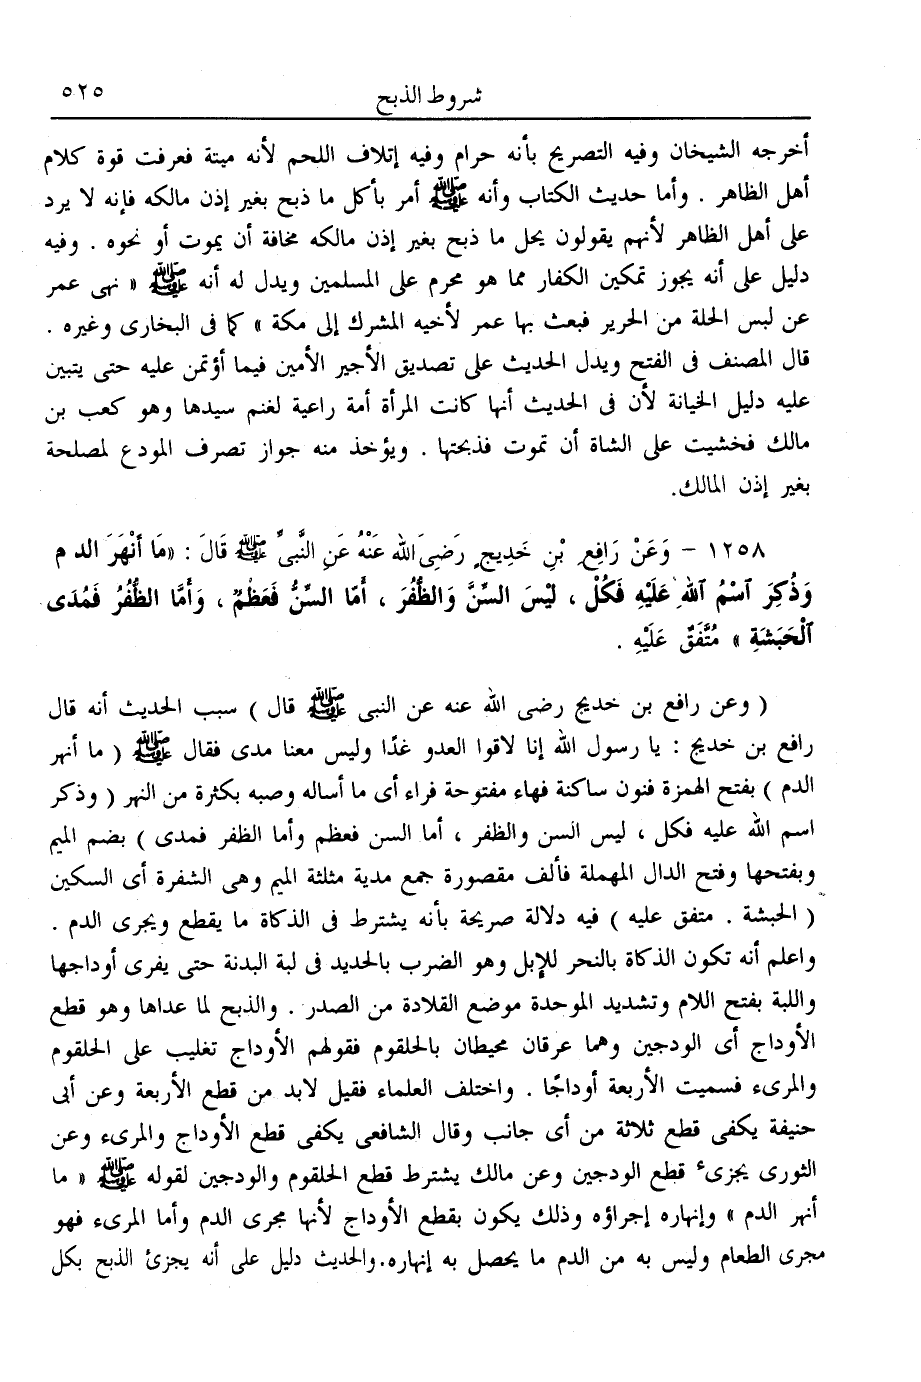 شروط الذبح ٥٢٥
أخرجه الشيخان وفيه التصريح بأنه حرام وفيه إتلاف اللحم لأنه ميتة فعرفت قوة كلام
أهل الظاهر . وأما حديث الكتاب وأنه ﷺ أمر بأكل ما ذبح بغير إذن مالكه فإنه لا يرد
على أهل الظاهر لأنهم يقولون يحل ما ذبح بغير إذن مالكه مخافة أن يموت أو نحوه . وفيه
دليل على أنه يجوز تمكين الكفار مما هو محرم على المسلمين ويدل له أنه ﷺ « نهى عمر
عن لبس الحلة من الحرير فبعث بها عمر لأخيه المشرك إلى مكة » كما فى البخارى وغيره .
قال المصنف فى الفتح ويدل الحديث على تصديق الأجير الأمين فيما أؤتمن عليه حتى يتبين
عليه دليل الخيانة لأن فى الحديث أنها كانت المرأة أمة راعية لغنم سيدها وهو كعب بن
مالك فخشيت على الشاة أن تموت فذبحتها . ويؤخذ منه جواز تصرف المودع لمصلحة
بغير إذن المالك.
١٢٥٨ - وَعَنْ رَافِعِ بْنِ خَدِيجٍ رَضِىَ اللهُ عَنْهُ عَنِ النَّبِىِّ ﷺ قَالَ : «مَا أَنْهَرَ الدم
وَذُكِرَ آسْمُ آللهِ عَلَيْهِ فَكُلْ ، لَيْسَ السِّنَّ وَالظُّفُرَ ، أَمَّا السِّنُّ فَعَظْمٌ ، وَأَمَّا الظُّفُرُ فَمُدَى
آلْحَبَشَةِ » مُتَّفَقٌ عَلَيْهِ .
( وعن رافع بن خديج رضى الله عنه عن النبى ﷺ قال ) سبب الحديث أنه قال
رافع بن خديج : يا رسول الله إنا لاقوا العدو غدًا وليس معنا مدى فقال ﷺ ( ما أنهر
الدم ) بفتح الهمزة فنون ساكنة فهاء مفتوحة فراء أى ما أساله وصبه بكثرة من النهر ( وذكر
اسم الله عليه فكل ، ليس السن والظفر ، أما السن فعظم وأما الظفر فمدى ) بضم الميم
وبفتحها وفتح الدال المهملة فألف مقصورة جمع مدية مثلثة الميم وهى الشفرة أى السكين
( الحبشة . متفق عليه ) فيه دلالة صريحة بأنه يشترط فى الذكاة ما يقطع ويجرى الدم .
واعلم أنه تكون الذكاة بالنحر للإبل وهو الضرب بالحديد فى لبة البدنة حتى يفرى أوداجها
واللبة بفتح اللام وتشديد الموحدة موضع القلادة من الصدر . والذبح لما عداها وهو قطع
الأوداج أى الودجين وهما عرقان محيطان بالحلقوم فقولهم الأوداج تغليب على الحلقوم
والمرىء فسميت الأربعة أوداجًا . واختلف العلماء فقيل لابد من قطع الأربعة وعن أبى
حنيفة يكفى قطع ثلاثة من أى جانب وقال الشافعى يكفى قطع الأوداج والمرىء وعن
الثورى يجزىء قطع الودجين وعن مالك يشترط قطع الحلقوم والودجين لقوله ﷺ « ما
أنهر الدم » وإنهاره إجراؤه وذلك يكون بقطع الأوداج لأنها مجرى الدم وأما المرىء فهو
مجرى الطعام وليس به من الدم ما يحصل به إنهاره.والحديث دليل على أنه يجزئ الذبح بكل